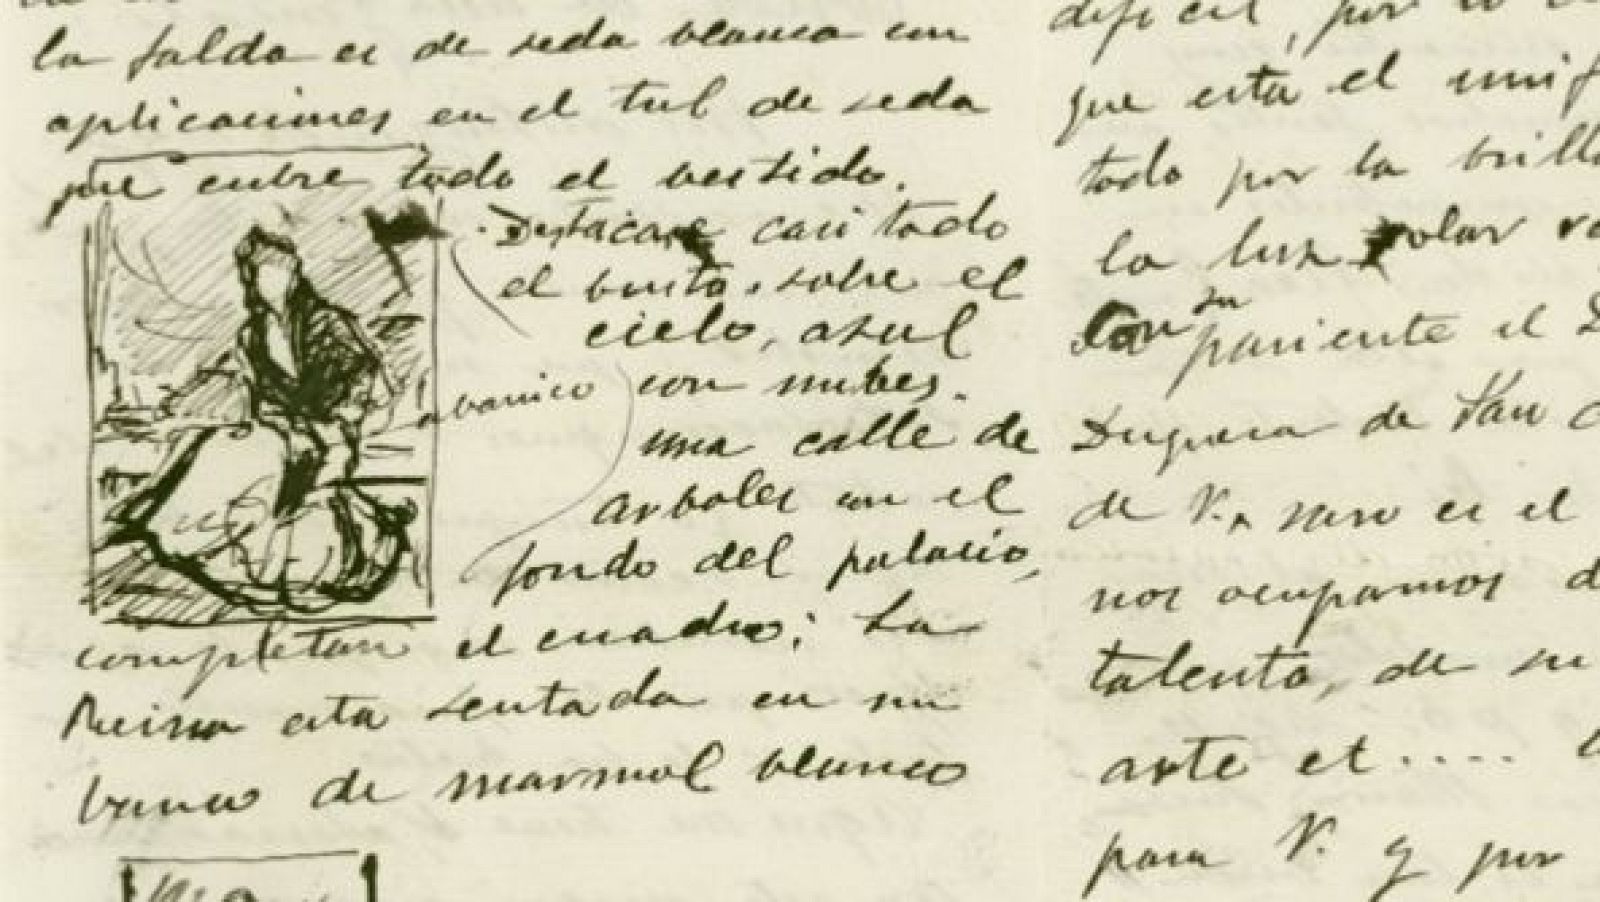 la falda es de seda blanca con
aplicaciones en el tul de seda
que cubre todo el vestido.
Destacase casi todo
el busto sobre el
cielo, azul
abanico
con nubes.
una calle de
arboles en el
fondo del palacio,
completan el cuadro; La
Reina esta sentada en un
banco de marmol blanco
dificil, por lo
que esta el unif
todo por la brill
la luz solar
con su pariente el D
Duquesa de San C
de V., pero es el
nos ocupamos d
talento, de su
arte et....
para V. y por